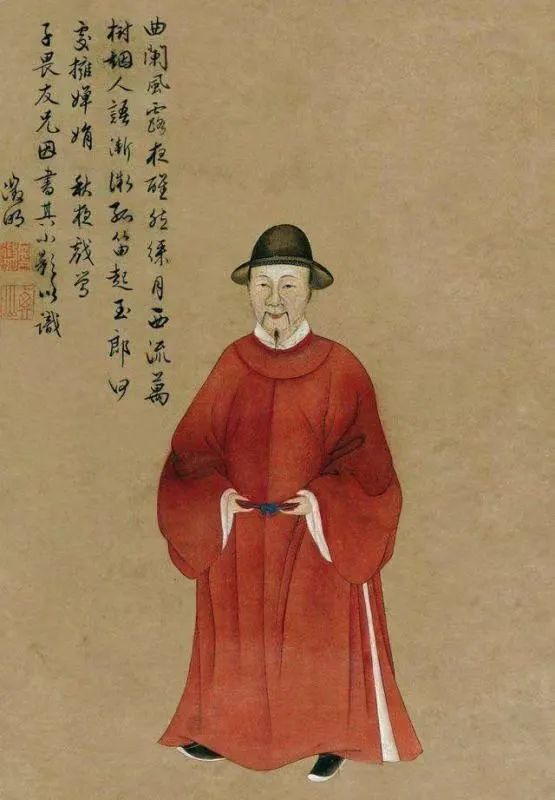 曲闌風露夜醒然綵月西流萬
樹烟人語漸微孤笛起玉郎何
處擁嬋娟 秋夜戲
子畏友兄因書其小影以識
徵明